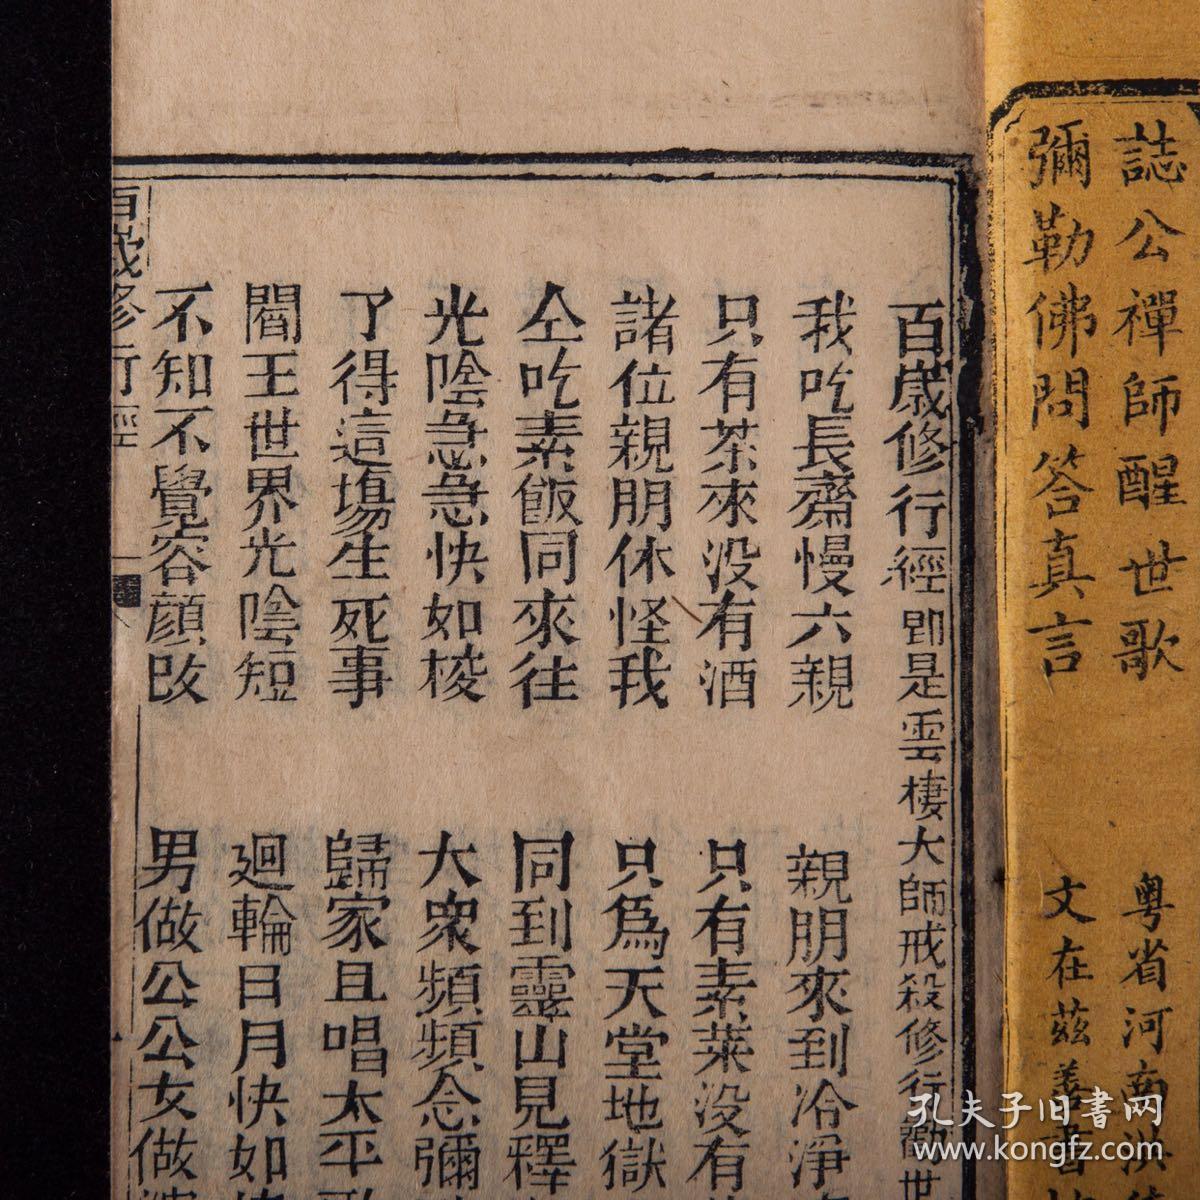 誌公禪師醒世歌 粤省河南洪
彌勒佛問答真言 文在茲善書
百歲修行經即是雲棲大師戒殺修行勸世
我吃長齋慢六親 親朋來到冷淨
只有茶來没有酒 只有素菜没有
諸位親朋休怪我 只為天堂地獄
仝吃素飯同來往 同到靈山見釋
光陰急急快如梭 大衆頻頻念彌
了得這塲生死事 歸家且唱太平歌
閻王世界光陰短 廻輪日月快如
不知不覺容顔改 男做公公女做婆
百歲修行經
孔夫子旧書网
www.kongfz.com